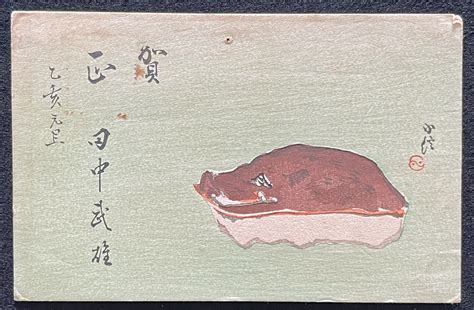 賀
正
田中武雄
乙亥元旦
小信